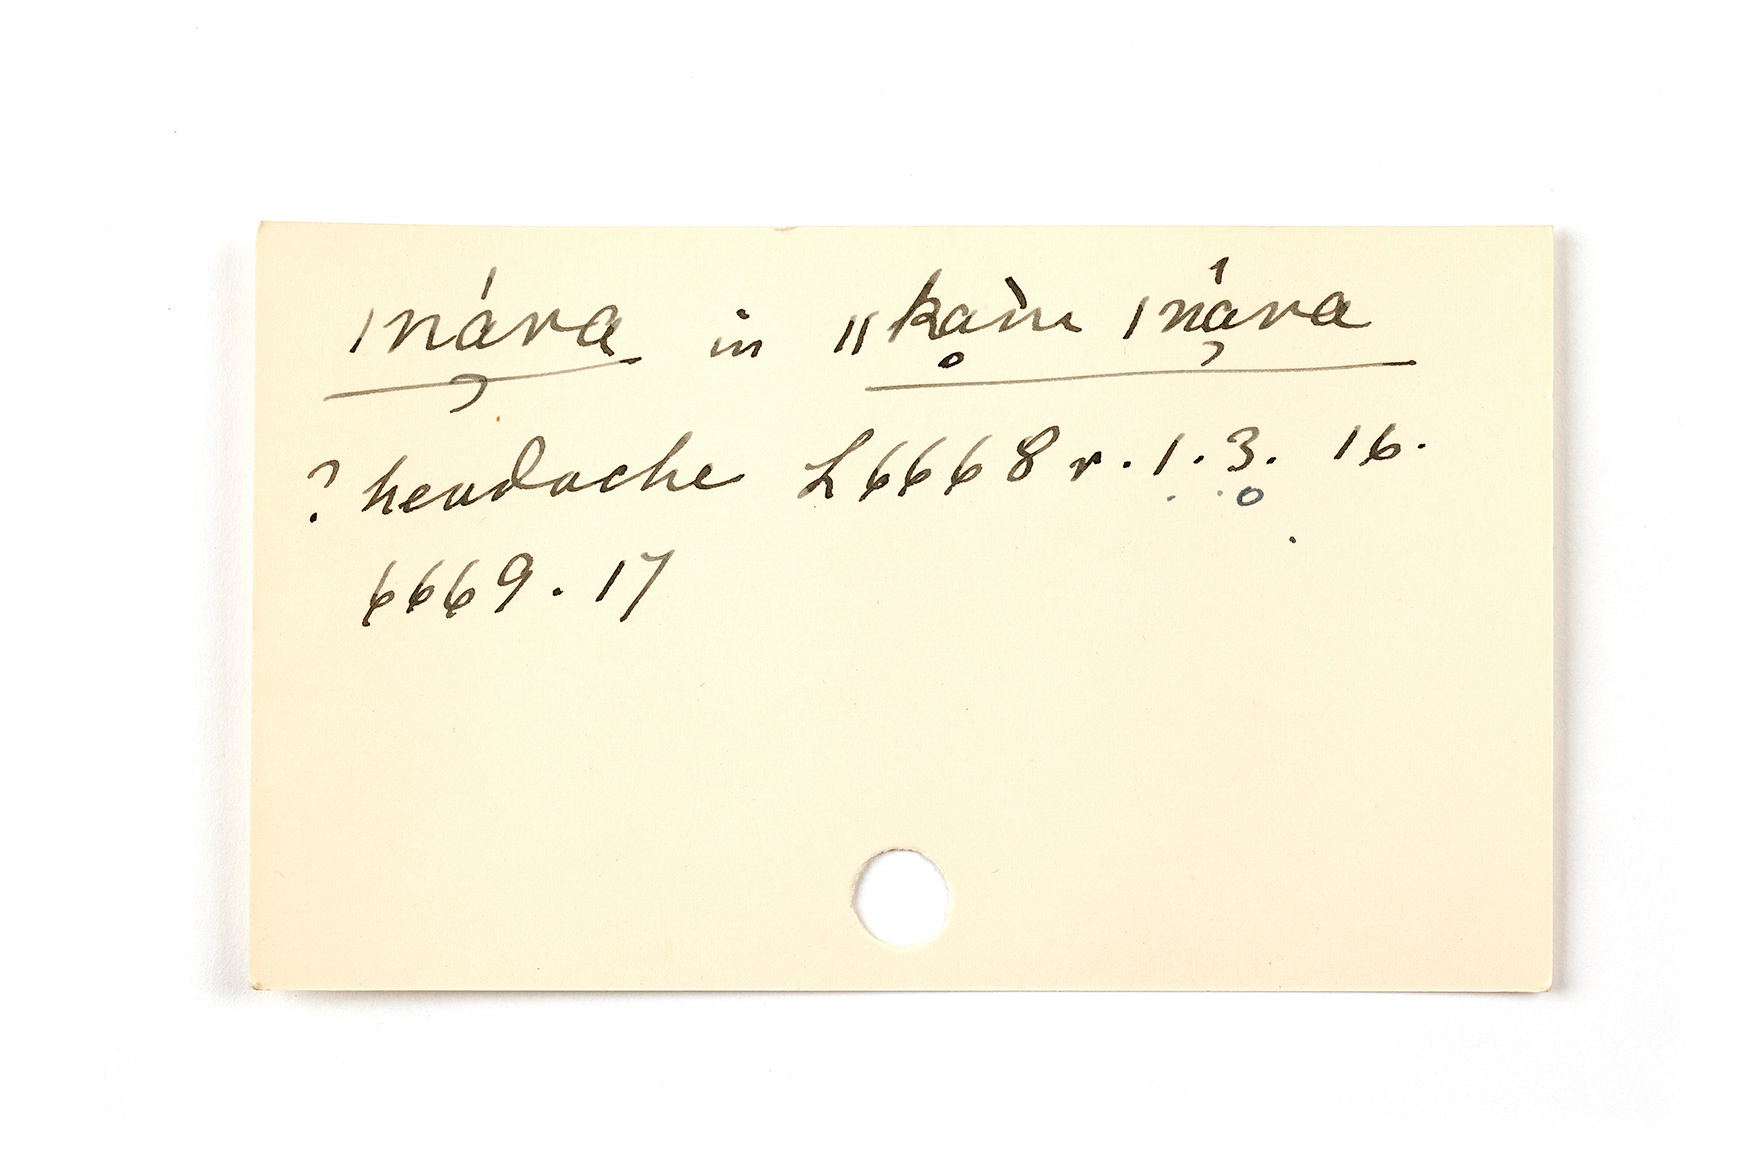 ǀná̦ra in ǁkḁı̀n ǀná̦ra
? headache L6668 r. 1. 3. 16.
6669. 17